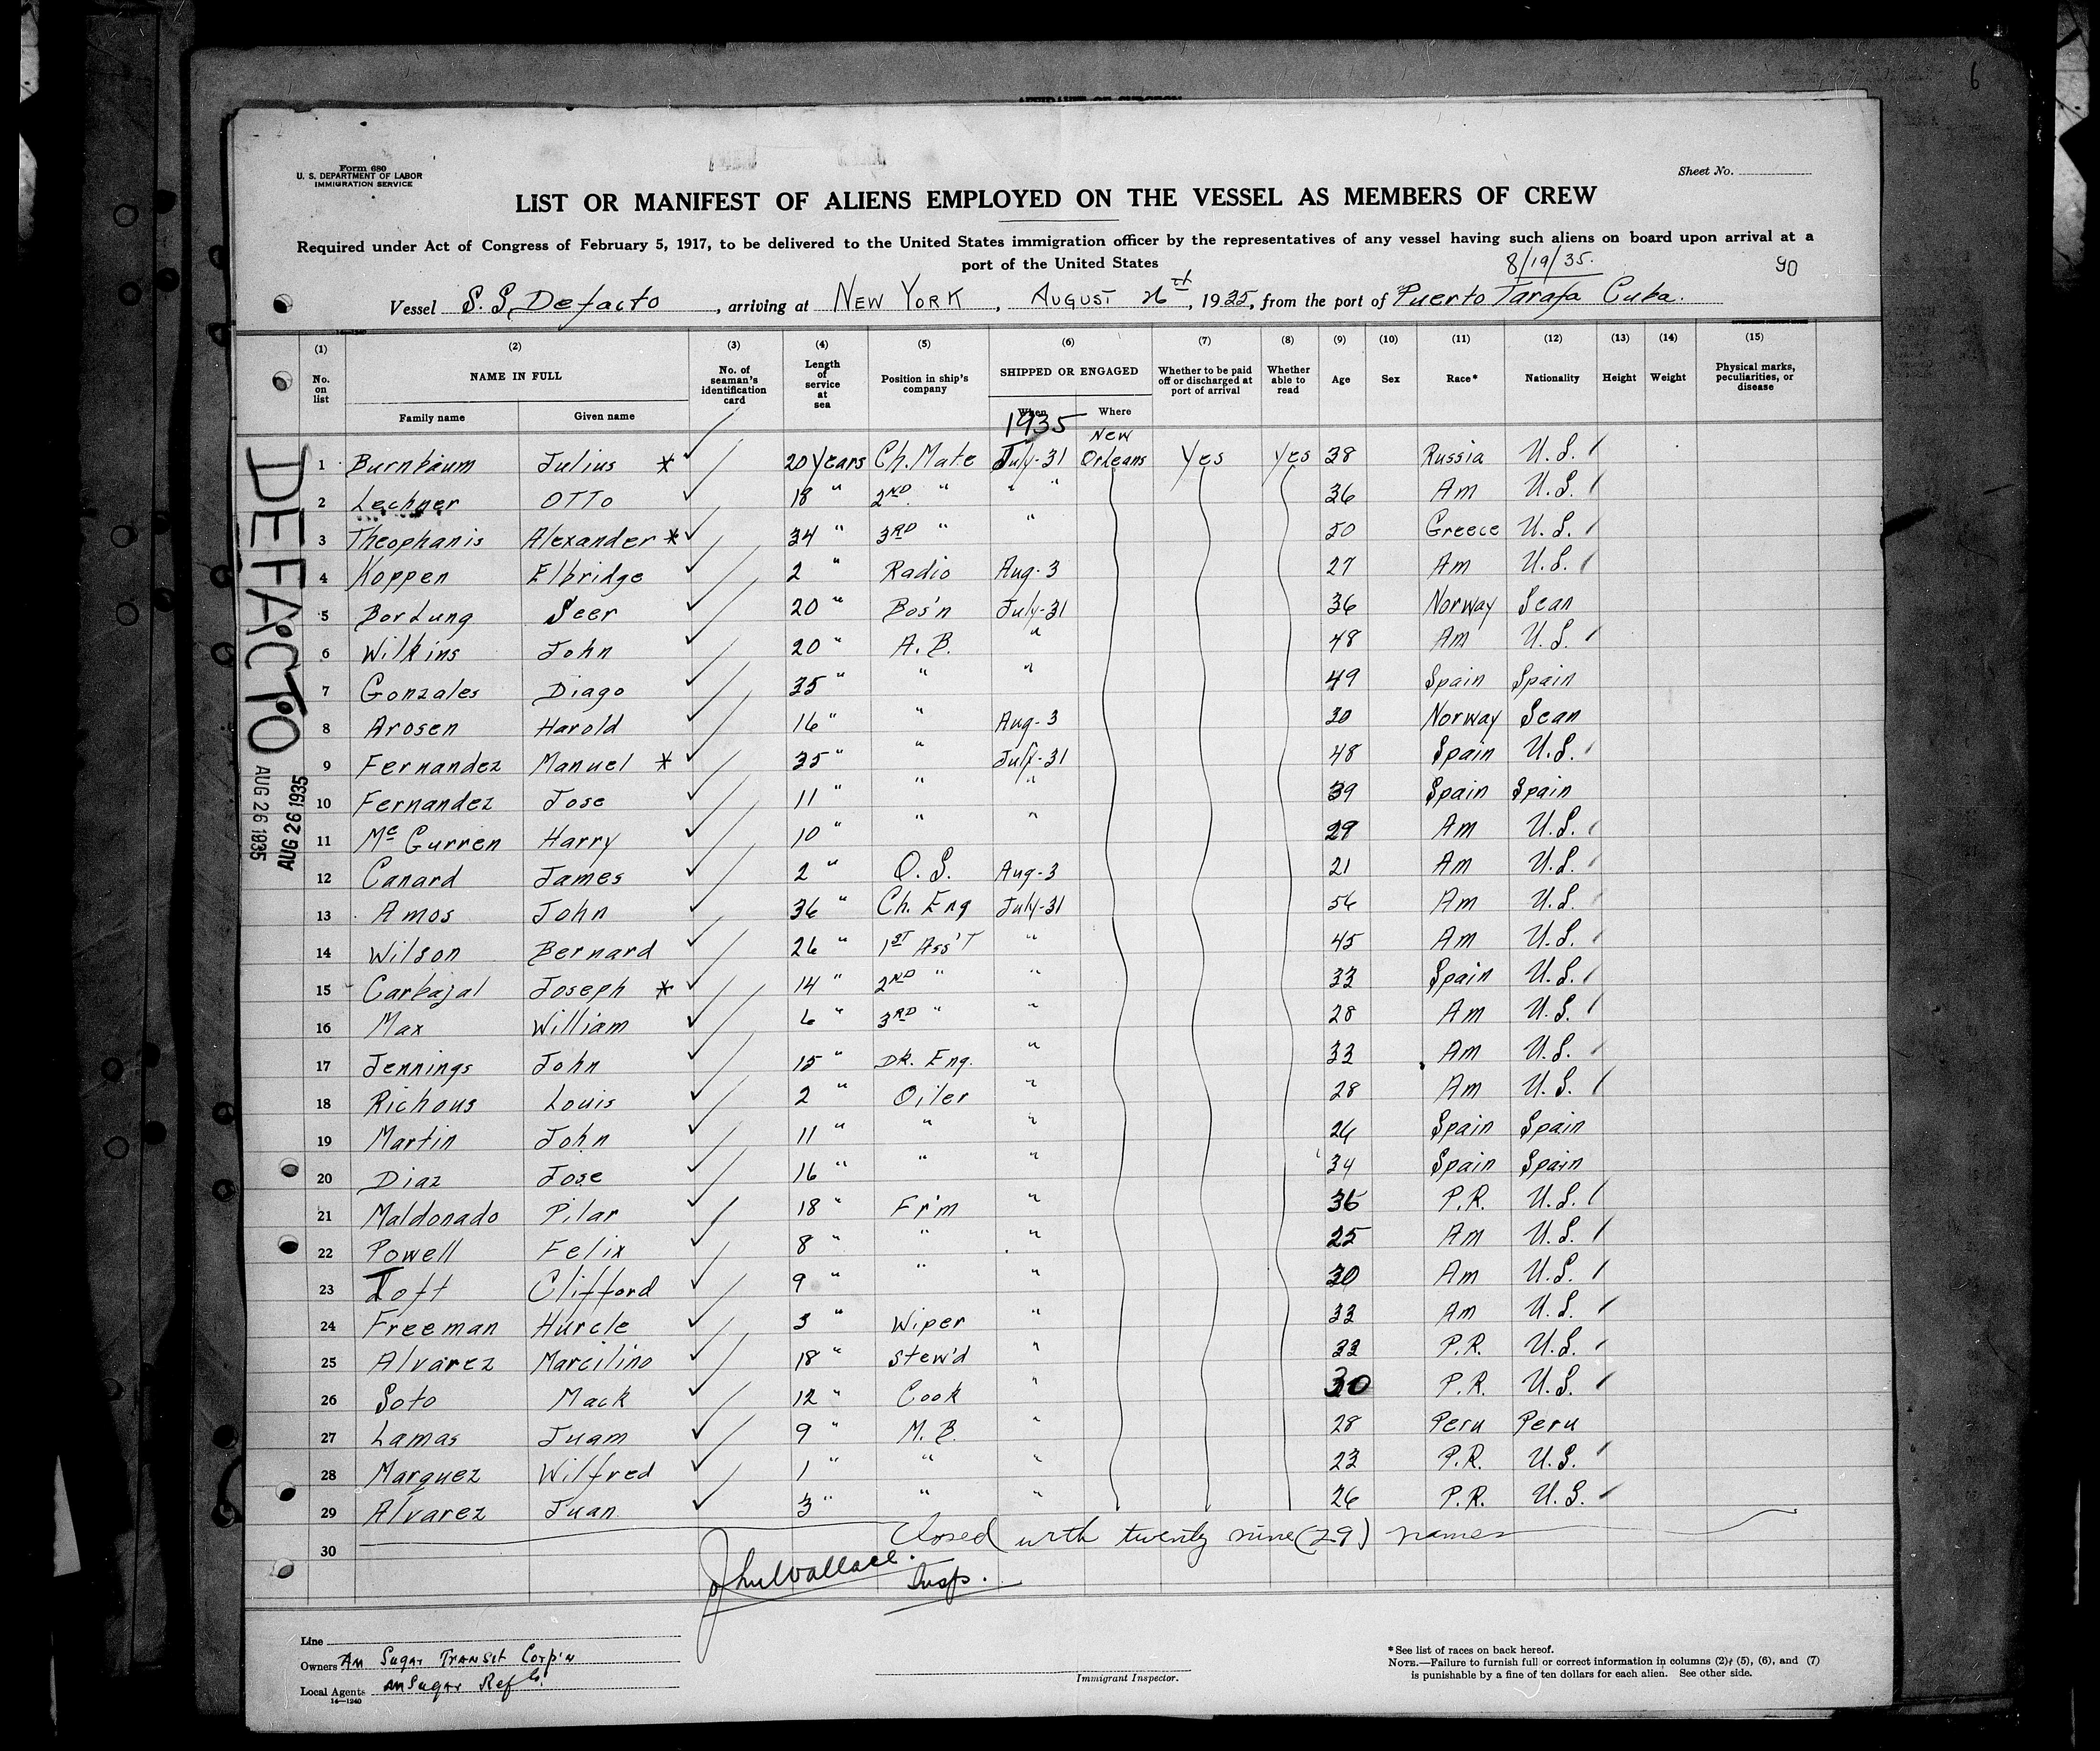 6
Form 680
U. S. DEPARTMENT OF LABOR
IMMIGRATION SERVICE
Sheet No.
LIST OR MANIFEST OF ALIENS EMPLOYED ON THE VESSEL AS MEMBERS OF CREW
Required under Act of Congress of February 5, 1917, to be delivered to the United States immigration officer by the representatives of any vessel having such aliens on board upon arrival at a
port of the United States
8/19/35. 90
Vessel S.S. Defacto, arriving at NEW YORK, AUGUST 26th, 1935, from the port of Puerto Tarafa Cuba.
(1) (2) (3) (4) (5) (6) (7) (8) (9) (10) (11) (12) (13) (14) (15)
No. on list NAME IN FULL No. of seaman's identification card Length of service at sea Position in ship's company SHIPPED OR ENGAGED Whether to be paid off or discharged at port of arrival Whether able to read Age Sex Race* Nationality Height Weight Physical marks, peculiarities, or disease
Family name Given name When Where
1935 New
1 Burnbaum Julius * 20 Years Ch. Mate July-31 Orleans Yes Yes 38 Russia U.S.
2 Lechner OTTO 18 " 2ND " " " 36 Am U.S.
3 Theophanis Alexander * 34 " 3RD " " 50 Greece U.S.
4 Koppen Elbridge 2 " Radio Aug-3 27 Am U.S.
5 Borlung Seer 20 " Bos'n July-31 36 Norway Scan
6 Wilkins John 20 " A.B. " 48 Am U.S.
7 Gonzales Diago 35 " " " 49 Spain Spain
8 Arosen Harold 16 " " Aug-3 30 Norway Scan
9 Fernandez Manuel * 35 " " July-31 48 Spain U.S.
10 Fernandez Jose 11 " " " 39 Spain Spain
11 Mc Gurren Harry 10 " " " 29 Am U.S.
12 Canard James 2 " O.S. Aug-3 21 Am U.S.
13 Amos John 36 " Ch. Eng July-31 56 Am U.S.
14 Wilson Bernard 26 " 1ST Ass'T " 45 Am U.S.
15 Carbajal Joseph * 14 " 2ND " " 33 Spain U.S.
16 Max William 6 " 3RD " " 28 Am U.S.
17 Jennings John 15 " DK. Eng. " 33 Am U.S.
18 Richous Louis 2 " Oiler " 28 Am U.S.
19 Martin John 11 " " " 26 Spain Spain
20 Diaz Jose 16 " " " 34 Spain Spain
21 Maldonado Pilar 18 " Fr'm " 36 P.R. U.S.
22 Powell Felix 8 " " " 25 Am U.S.
23 Toft Clifford 9 " " " 30 Am U.S.
24 Freeman Hurcle 3 " Wiper " 33 Am U.S.
25 Alvarez Marcilino 18 " Stew'd " 33 P.R. U.S.
26 Soto Mack 12 " Cook " 30 P.R. U.S.
27 Lamas Juam 9 " M.B. " 28 Peru Peru
28 Marquez Wilfred 1 " " " 23 P.R. U.S.
29 Alvarez Juan 3 " " " 26 P.R. U.S.
Closed with twenty nine (29) names
30
John Wallace. Insp.
DEFACTO
AUG 26 1935
AUG 26 1935
Line
Owners Am Sugar Transit Corp'n
Local Agents Am Sugar Ref Co.
14—1240
Immigrant Inspector.
*See list of races on back hereof.
NOTE.—Failure to furnish full or correct information in columns (2), (5), (6), and (7)
is punishable by a fine of ten dollars for each alien. See other side.